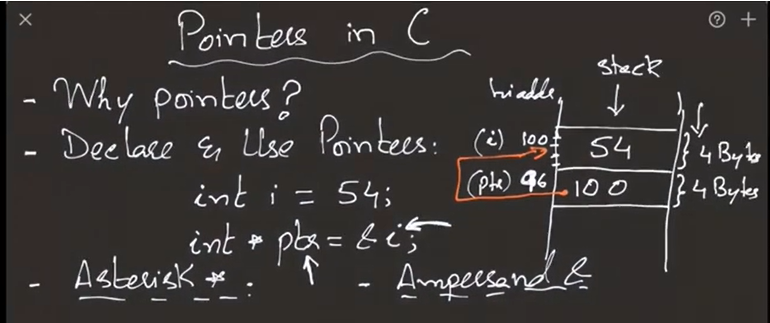 Pointers in C
- Why pointers?
- Declare & Use Pointers:
int i = 54;
int * ptr = & i;
- Asterisk * .
- Ampersand &
stack
hi addr
(i) 100 54 } 4 Byte
(ptr) 96 100 } 4 Bytes